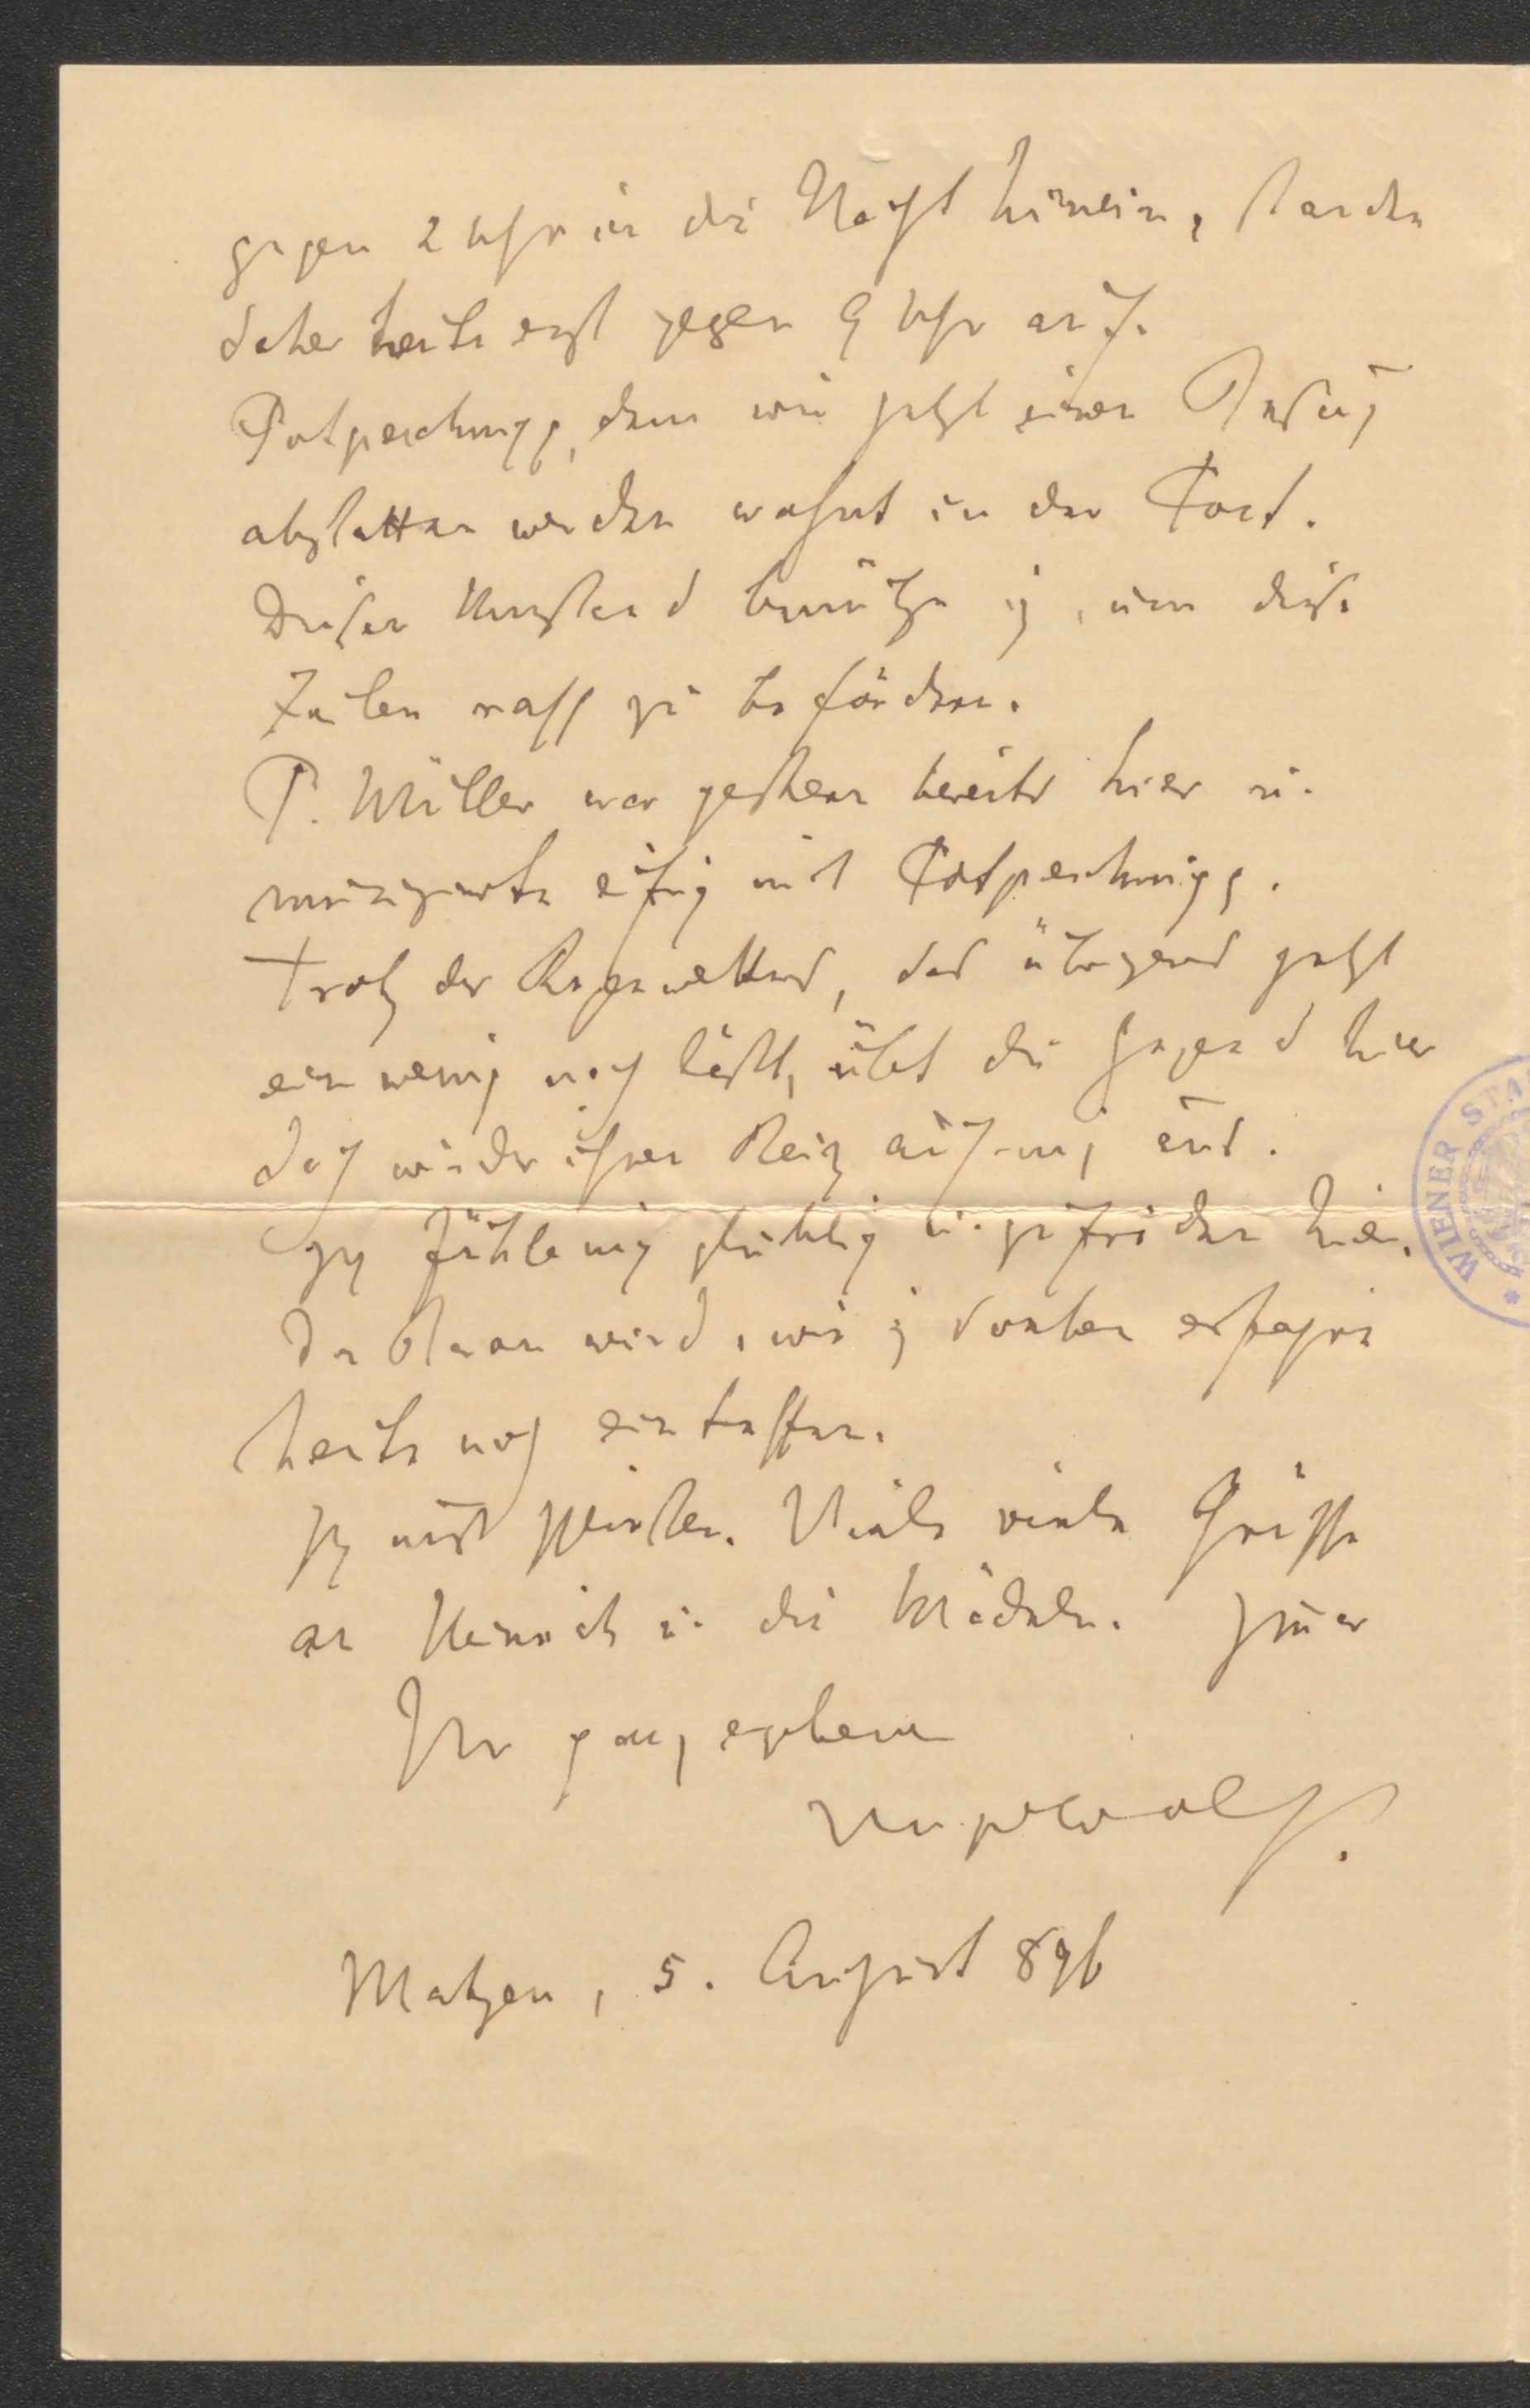 gegen 2 Uhr in die Nacht hinein, standen
daher heute erst gegen 9 Uhr auf.
Potpeschnigg, dem wir jetzt einen Besuch
abstatten werden wohnt in der Post.
Diesen Umstand benütze ich, um diese
Zeilen rasch zu befördern.
P. Müller war gestern bereits hier u.
musizierte eifrig mit Potpeschnigg.
Trotz des Regenwetters, das übrigens jetzt
ein wenig nach läßt, übt die Gegend hier
doch wieder ihren Reiz auf mich aus.
Ich fühle mich glücklich u. zufrieden hier.
Der Baron wird, wie ich soeben erfahre
heute noch eintreffen.
Ich muß schließen. Viele viele Grüsse
an Heinrich u. die Mädeln. Immer
Ihr ganz ergebener
Hugo Wolf.
Matzen, 5. August 896
WIENER STA